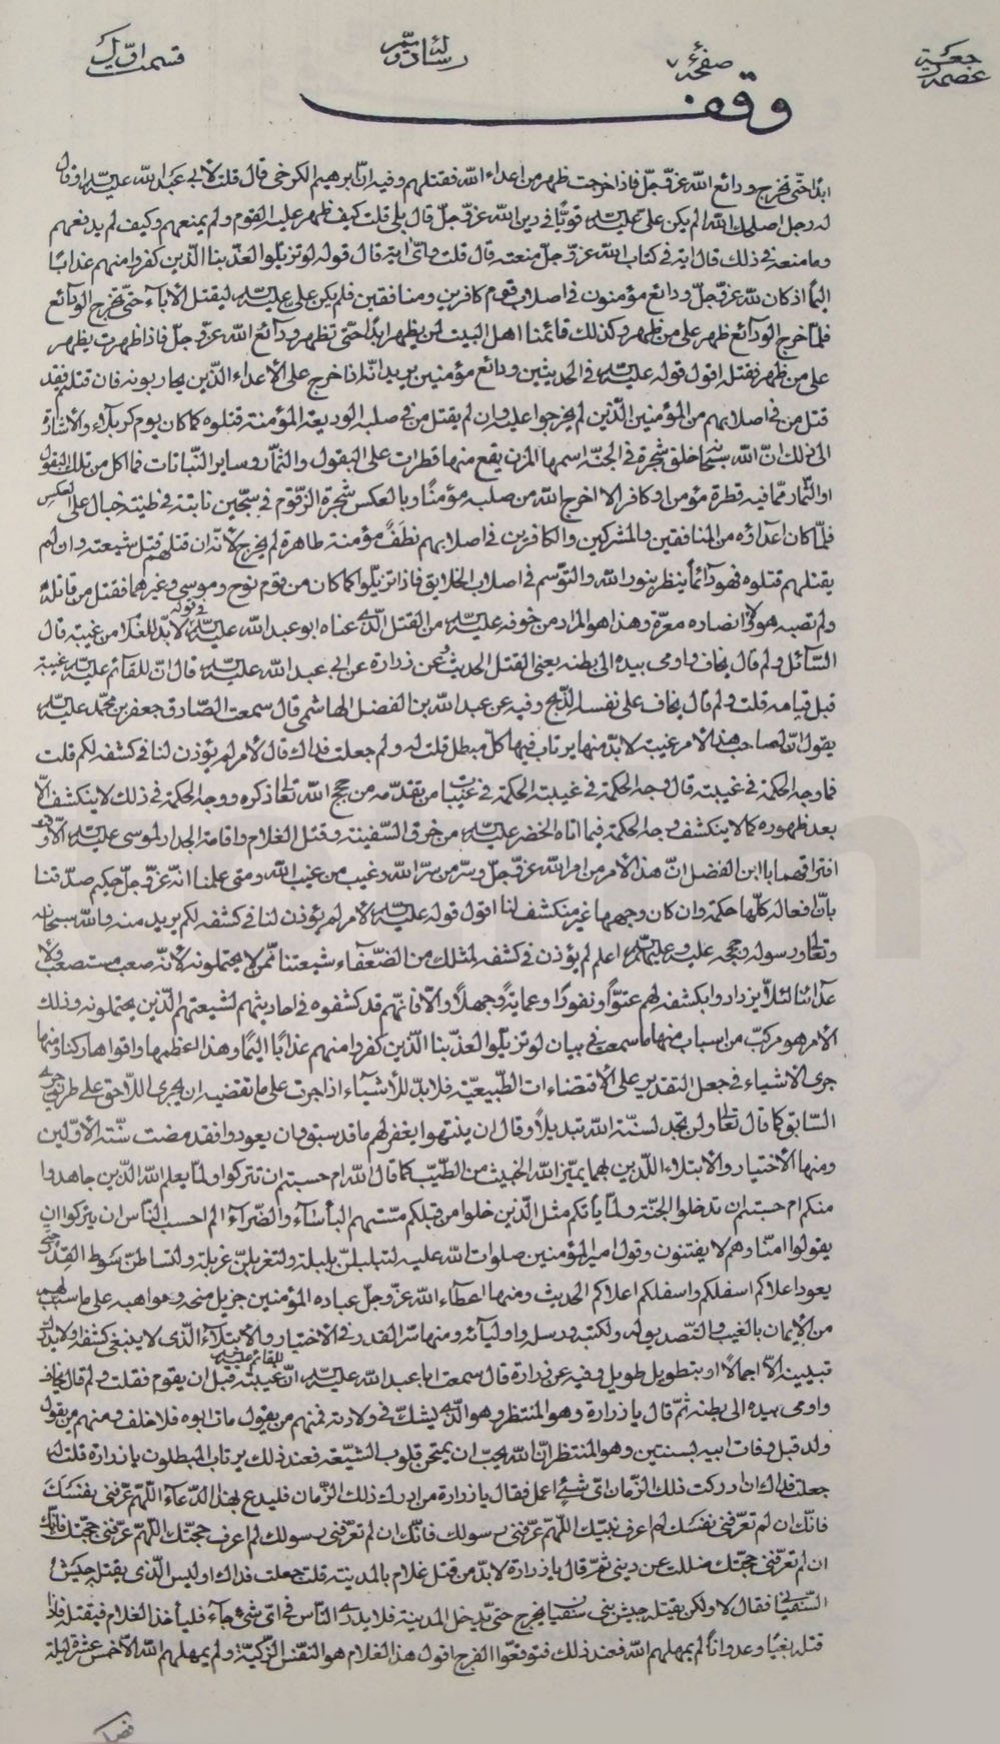 جعة عصمة
صفحة ٧
رسالة دويم
قسمت اول
وقف
ابدا حتّى تخرج ودائع الله عزّ وجلّ فاذا خرجت ظهر من اعداء الله فقتلهم وفيه انّ ابرهيم الكرخى قال قلت لابى عبد الله عليه السلم او قال
له رجل اصلحك الله الم يكن علىّ عليه السلم قويًّا فى دين الله عزّ وجلّ قال بلى قلت كيف ظهر عليه القوم ولم يمنعهم وكيف لم يدفعهم
وما منعه فى ذلك قال اية فى كتاب الله عزّ وجلّ منعته قال قلت واىّ اية قال قوله لو تزيّلوا لعذّبنا الّذين كفروا منهم عذابًا
اليمًا اذ كان لله عزّ وجلّ ودائع مؤمنون فى اصلاب قوم كافرين ومنافقين فلم يكن على عليه السلم ليقتل الاباء حتّى تخرج الودآئع
فلمّا خرج الودآئع ظهر على من ظهر وكذلك قائمنا اهل البيت لن يظهر ابدًا حتّى تظهر ودآئع الله عزّ وجلّ فاذا ظهرت يظهر
على من ظهر فقتله اقول قوله عليه السلم فى الحديثين ودائع مؤمنين يريد انّه اذا خرج على الأعداء الّذين يحاربونه فان قتلهم فقد
قتل من فى اصلابهم من المؤمنين الّذين لم يخرجوا عليه وان لم يقتل من فى صلبه الوديعة المؤمنة قتلوه كما كان يوم كربلاء والأشارة
الى ذلك انّ الله سبحانه خلق شجرة فى الجنّة اسمها المزن يقع منها قطرات على البقول والثّمار وساير النّباتات فما اكل من تلك البقول
او الثّمار ممّا فيه قطرة مؤمن او كافر الا اخرج الله من صلبه مؤمنًا وبالعكس شجرة الزّقوم فى سجّين نابتة فى طينة خبال على العكس
فلمّا كان اعدآؤه من المنافقين والمشركين والكافرين فى اصلابهم نطَفٌ مؤمنة طاهرة لم يخرج لأنّه ان قتلهم قتل شيعته وان لم
يقتلهم قتلوه فهو دآئمًا ينظر بنور الله والتوّسم فى اصلاب الخلايق فاذا تزيّلوا كما كان من قوم نوح وموسى وغيرهما فقتل من قاتله
ولم تصبه هو ولا انصاره معرّة وهذا هو المراد من خوفه عليه السلم من القتل الّذى عناه ابو عبد الله عليه السلم فى قوله لا بدّ للغلام من غيبة قال
السّآئل ولم قال يخاف واومى بيده الى بطنه يعنى القتل الحديث وعن زرارة عن ابى عبد الله عليه السلم قال انّ للقآئم عليه السلم غيبة
قبل قيامه قلت ولم قال يخاف على نفسه الذّبح وفيه عن عبد الله بن الفضل الهاشمى قال سمعت الصّادق جعفر بن محمّد عليه السلم
يقول انّ لصاحب هذا الأمر غيبة لا بدّ منها يرتاب فيها كلّ مبطل قلت له ولم جعلت فداك قال لأمر لم يؤذن لنا فى كشفه لكم قلت
فما وجه الحكمة فى غيبته قال وجه الحكمة فى غيبته الحكمة فى غيبات من تقدّمه من حجج الله تعالى ذكره ووجه الحكمة فى ذلك لا ينكشف الّا
بعد ظهوره كما لا ينكشف وجه الحكمة فيما اتاه الخضر عليه السلم من خرق السّفينة وقتل الغلام واقامة الجدار لموسى عليه السلم الّا وقت
افتراقهما يا ابن الفضل انّ هذا الأمر من امر الله عزّ وجلّ وسرّ من سرّ الله وغيب من غيب الله ومتى علمنا انّه عزّ وجلّ حكيم صدّقنا
بانّ افعاله كلّها حكمة وان كان وجهها غير منكشف لنا اقول قوله عليه السلم لأمر لم يؤذن لنا فى كشفه لكم يريد منه والله سبحانه
وتعالى ورسوله وحججه عليه وعليهم السلم اعلم لم يؤذن فى كشفه لمثلك من الضّعفآء شيعتنا ممّن لا يحتملونه لأنّه صعب مستصعب ولا
عدآئنا لئلّا يزدادوا بكشفه لهم عتوًّا ونفورًا وعماية وجهلًا والّا فانّهم قد كشفوه فى احاديثهم لشيعتهم الّذين يحتملونه وذلك
الأمر هو مركّب من اسباب منها ما سمعت فى بيان لو تزيّلوا لعذّبنا الّذين كفروا منهم عذابًا اليمًا وهذا اعظمها واقواها ركنا ومنها
جرى الاشياء فى جعل التقدير على الأقتضاءات الطّبيعيّة فلا بدّ للأشيآء اذا جرت على ما تقتضيه ان يجرى اللّاحق على طريق جرى
السّابق كما قال تعالى ولن تجد لسنّة الله تبديلًا وقال ان ينتهوا يغفر لهم ما قد سبق وان يعودوا فقد مضت سنّة الأوّلين
ومنها الأختيار والابتلاء اللّذين بهما يميّز الله الخبيث من الطّيّب كما قال الله ام حسبتم ان تتركوا ولمّا يعلم الله الّذين جاهدوا
منكم ام حسبتم ان تدخلوا الجنّة ولمّا يأتكم مثل الّذين خلوا من قبلكم مسّتهم البأسآء والضّرآء الم احسب النّاس ان يتركوا ان
يقولوا امنّا وهم لا يفتنون وقول امير المؤمنين صلوات الله عليه لتبلبلنّ بلبلة ولتغربلنّ غربلة ولتساطنّ سوط القدر حتّى
يعود اعلاكم اسفلكم واسفلكم اعلاكم الحديث ومنها اعطآء الله عزّ وجلّ عباده المؤمنين جزيل منحه ومواهبه على ما سبق لهم
من الإيمان بالغيب والتّصديق له ولكتبه ورسله واوليآئه ومنها سرّ القدر فى الاختيار والأبتلآء الّذى لا ينبغى كشفه ولا يدرك
تبيينه الّا اجمالًا او بتطويل طويل وفيه عن زرارة قال سمعت ابا عبد الله عليه السلم انّ للقآئم عليه السلم غيبة قبل ان يقوم فقلت ولم قال يخاف
واومى بيده الى بطنه ثمّ قال يا زرارة وهو المنتظر وهو الّذى يشكّ فى ولادته فمنهم من يقول مات ابوه فلا خلف ومنهم من يقول
ولد قبل وفات ابيه بسنتين وهو المنتظر انّ الله يحبّ ان يمتحن قلوب الشّيعة فعند ذلك يرتاب المبطلون يا زرارة قلت
جعلت فداك ان ادركت ذلك الزّمان اىّ شئ اعمل فقال يا زرارة من ادرك ذلك الزّمان فليدع بهذا الدّعآء اللّهمّ عرّفنى نفسك
فانّك ان لم تعرّفنى نفسك لم اعرف نبيّك اللّهمّ عرّفنى رسولك فانّك ان لم تعرّفنى رسولك لم اعرف حجّتك اللّهمّ عرّفنى حجّتك فانّك
ان لم تعرّفنى حجّتك ضللت عن دينى ثمّ قال يا زرارة لا بدّ من قتل غلام بالمدينة قلت جعلت فداك اوليس الّذى يقتله جيش
السّفيانى فقال لا ولكن يقتله جيش بنى سفيان يخرج حتّى يدخل المدينة فلا يدرى النّاس فى اىّ شئ جآء فيأخذ الغلام فيقتله فاذا
قتله بغيًا وعدوانًا لم يمهلهم الله فعند ذلك فتوقّعوا الفرج اقول هذا الغلام هو النّفس الزّكيّة ولم يمهلهم الله الّا خمس عشرة ليلة